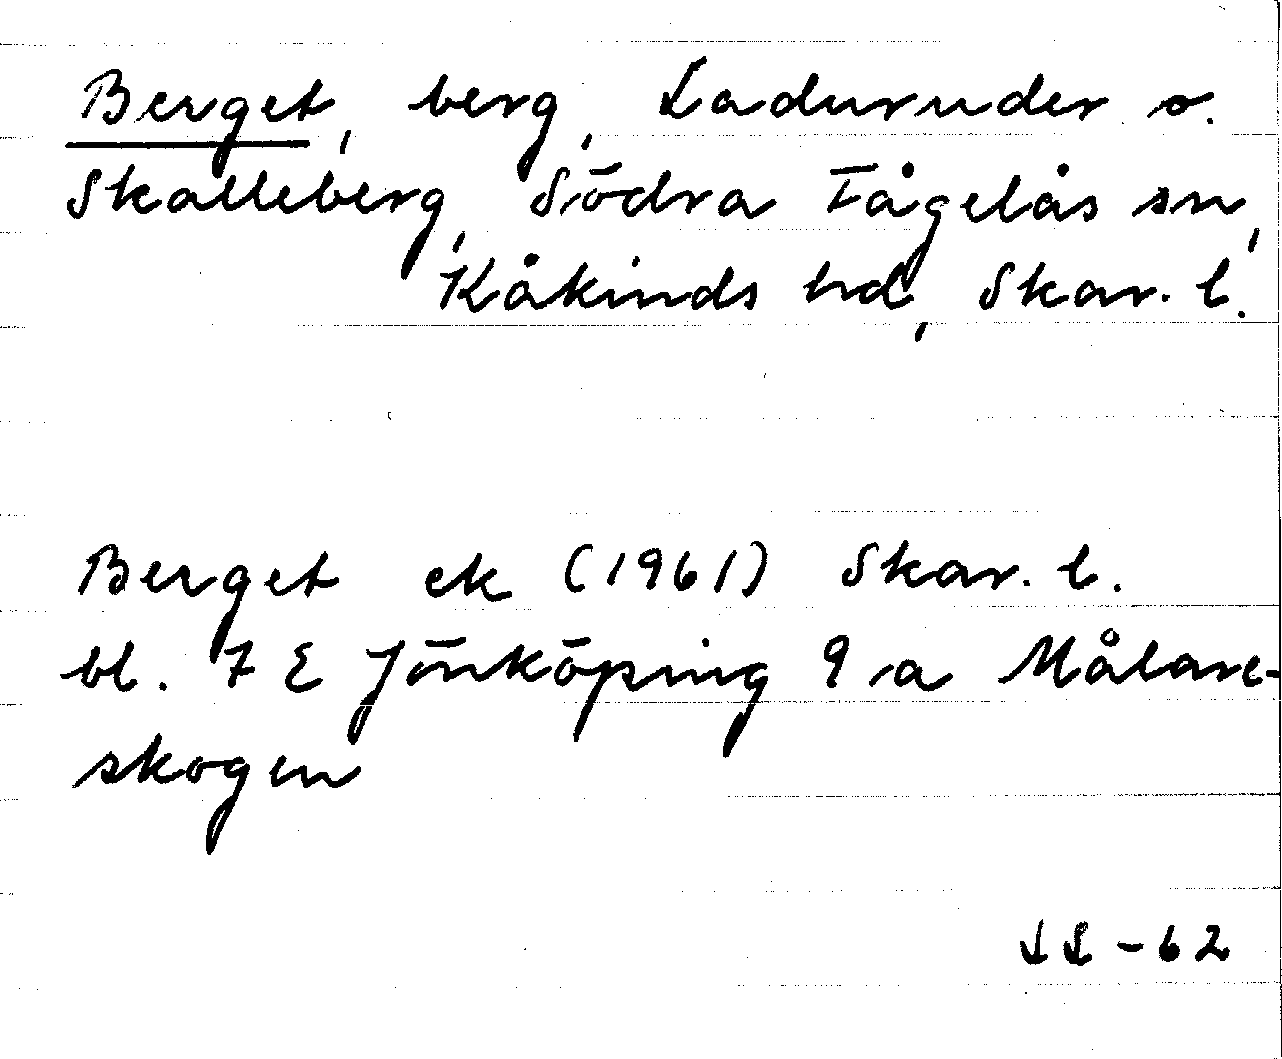 Berget, berg, Laduruder o.
Skalleberg, Södra Fågelås sn,
Kåkinds hd, Skar. l.
Berget ek (1961) Skar. l.
bl. 7 E Jönköping 9 a Målare-
skogen
LL -62